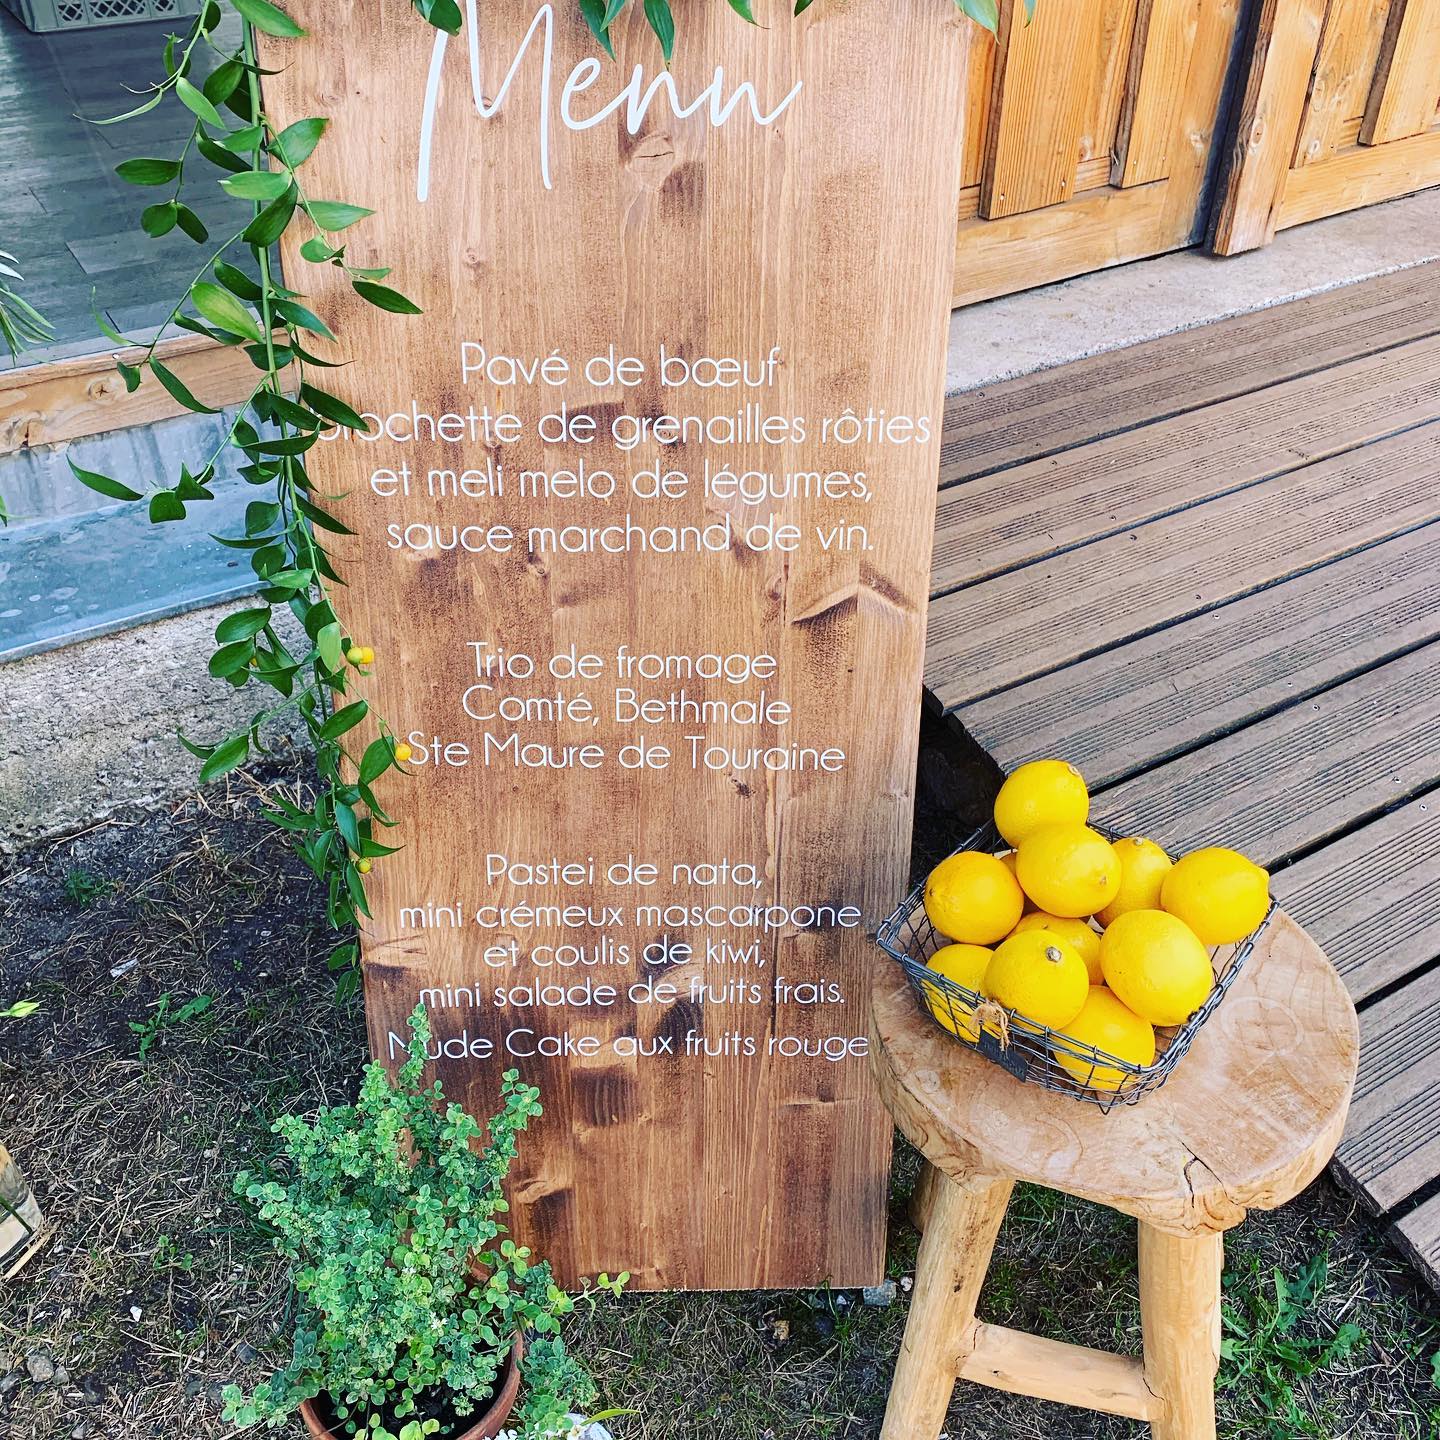 Menu
Pavé de bœuf
brochette de grenailles rôties
et meli melo de légumes,
sauce marchand de vin.
Trio de fromage
Comté, Bethmale
Ste Maure de Touraine
Pastei de nata,
mini crémeux mascarpone
et coulis de kiwi,
mini salade de fruits frais.
Nude Cake aux fruits rouge